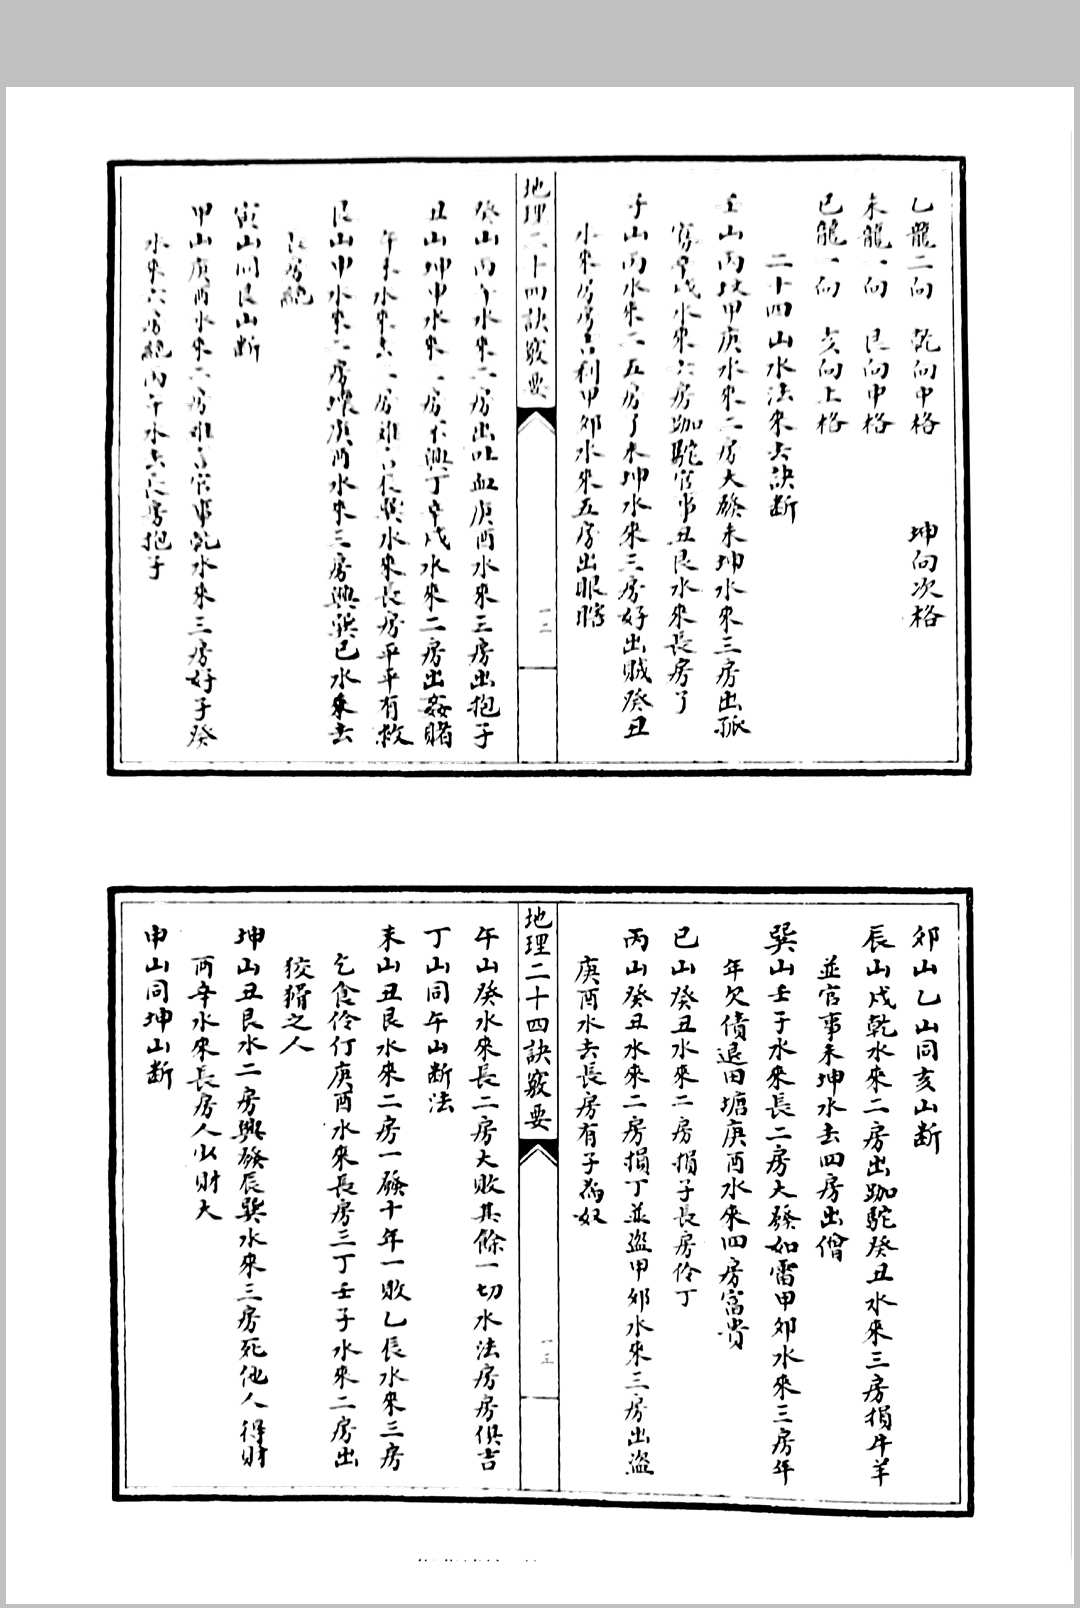 乙龍二向　乾向中格　坤向次格
未龍一向　艮向中格
巳龍一向　亥向上格
二十四山水法來去訣斷
壬山丙坟甲庚水來二房大發未坤水來三房出孤
寡辛戌水來六房跏駝官事丑艮水來長房了
子山丙水來二五房了未坤水來三房好出賊癸丑
水來房房吉利甲夘水來五房出眼瞎
地理二十四訣竅要
一二
癸山丙午水來二房出吐血庚酉水來三房出抱子
丑山坤申水來一房不興丁辛戌水來二房出姦賭
午未水來去一房難言長巽水來長房平平有救
艮山申水來二房壞庚酉水來三房興巽巳水來去
長房絕
寅山同艮山斷
甲山庚酉水來二房難言官事乾水來三房好子癸
水來六房絕丙午水去長房抱子
夘山乙山同亥山斷
辰山戌乾水來二房出跏駝癸丑水來三房損牛羊
並官事未坤水去四房出僧
巽山壬子水來長二房大發如雷甲夘水來三房年
年欠債退田塘庚酉水來四房富貴
巳山癸丑水來二房損子長房伶丁
丙山癸丑水來二房損丁並盜甲夘水來三房出盜
庚酉水去長房有子為奴
地理二十四訣竅要
一三
午山癸水來長二房大敗其餘一切水法房房俱吉
丁山同午山斷法
未山丑艮水來二房一發十年一敗乙辰水來三房
乞食伶仃庚酉水來長房三丁壬子水來二房出
狡猾之人
坤山丑艮水二房興發辰巽水來三房死他人得財
丙辛水來長房人少財大
申山同坤山斷